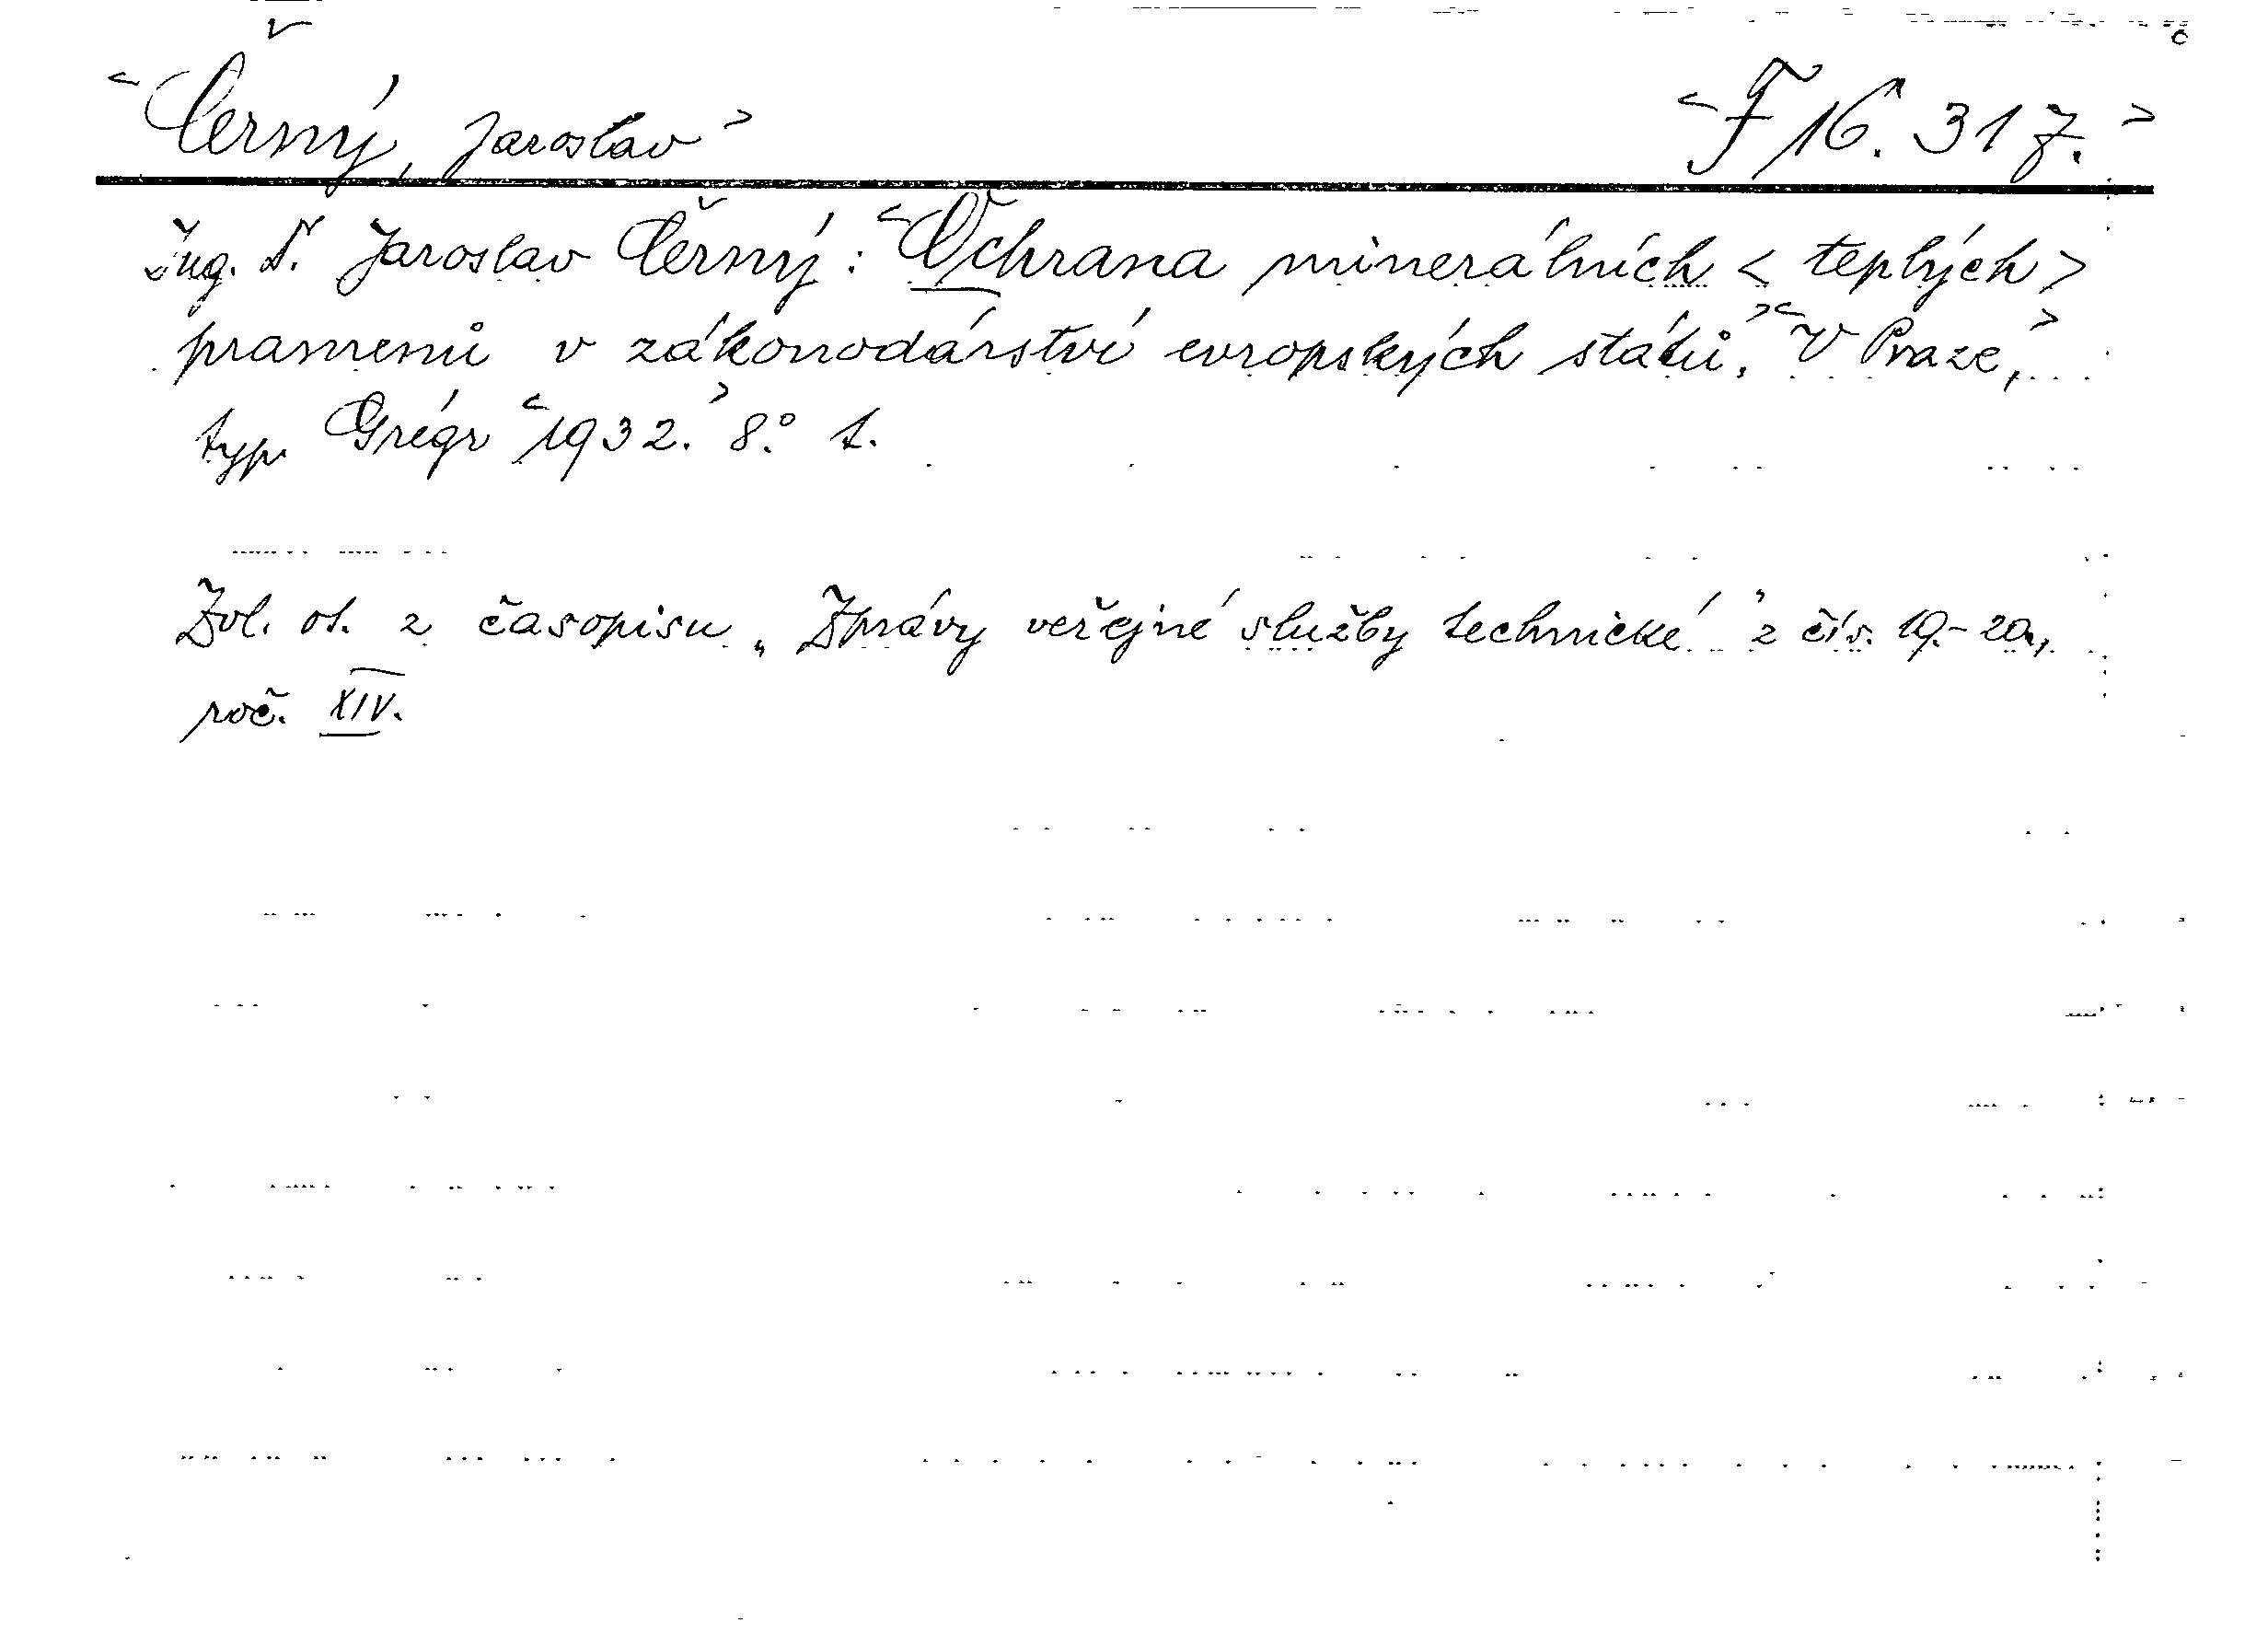 <Černý, Jaroslav> <F 16.317.>
Ing. D. Jaroslav Černý: <Ochrana minerálních <teplých>
pramenů v zákonodárství evropských států.> <V Praze,>
typ. Grégr <1932.> 8.° 1.
Zvl. ot. z časopisu „Zprávy veřejné služby technické" z čís. 19.-20.,
roč. XIV.